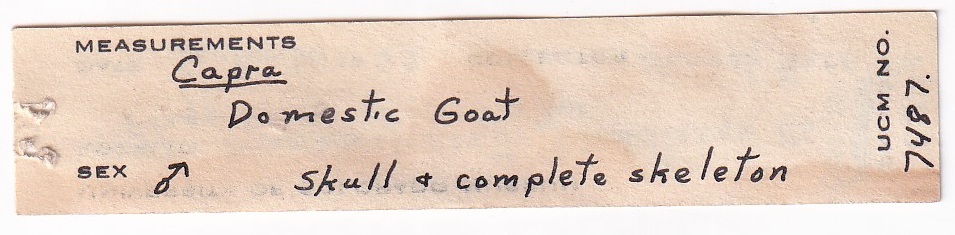 MEASUREMENTS
Capra
Domestic Goat
SEX ♂ Skull & complete skeleton
UCM NO.
7487.